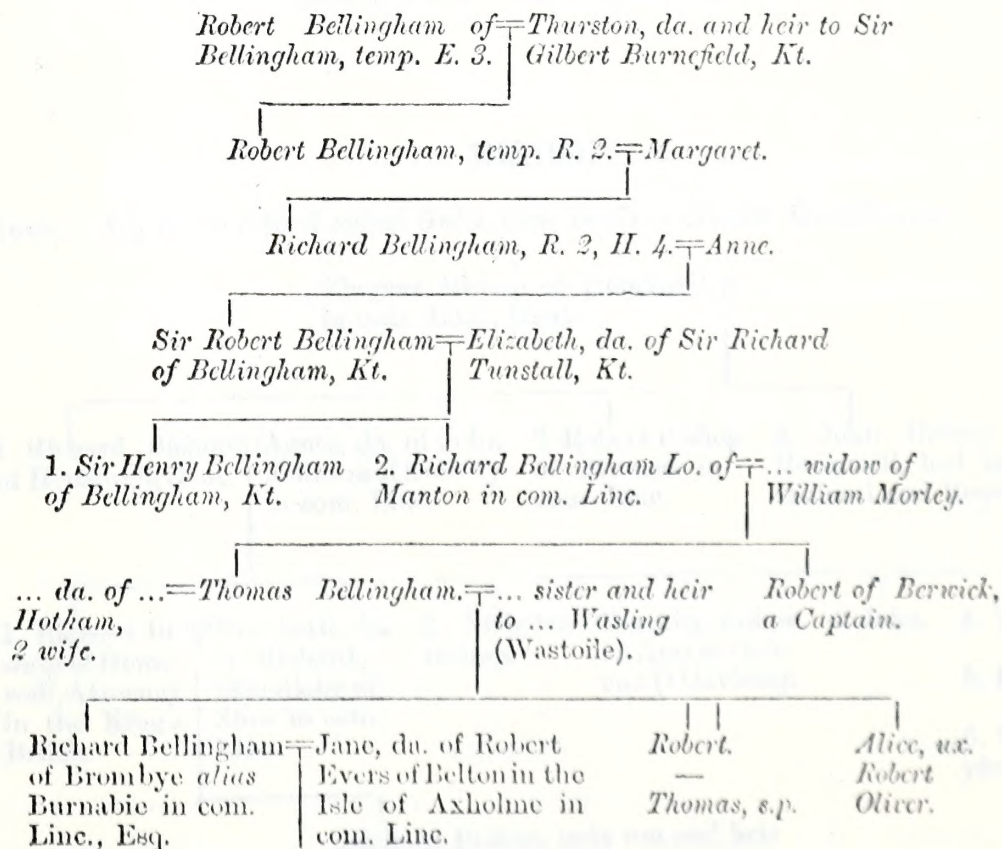 Robert Bellingham of Thurston, da. and heir to Sir
Bellingham, temp. E. 3. Gilbert Burnefield, Kt.
Robert Bellingham, temp. R. 2. Margaret.
Richard Bellingham, R. 2, H. 4. Anne.
Sir Robert Bellingham Elizabeth, da. of Sir Richard
of Bellingham, Kt. Tunstall, Kt.
1. Sir Henry Bellingham
of Bellingham, Kt.
2. Richard Bellingham Lo. of
Manton in com. Linc.
... widow of
William Morley.
... da. of ...
Hotham,
2 wife.
Thomas Bellingham.
... sister and heir
to ... Wasling
(Wastoile).
Robert of Berwick,
a Captain.
Richard Bellingham
of Brombye alias
Burnabie in com.
Linc., Esq.
Jane, da. of Robert
Evers of Belton in the
Isle of Axholme in
com. Linc.
Robert.
—
Thomas, s.p.
Alice, ux.
Robert
Oliver.